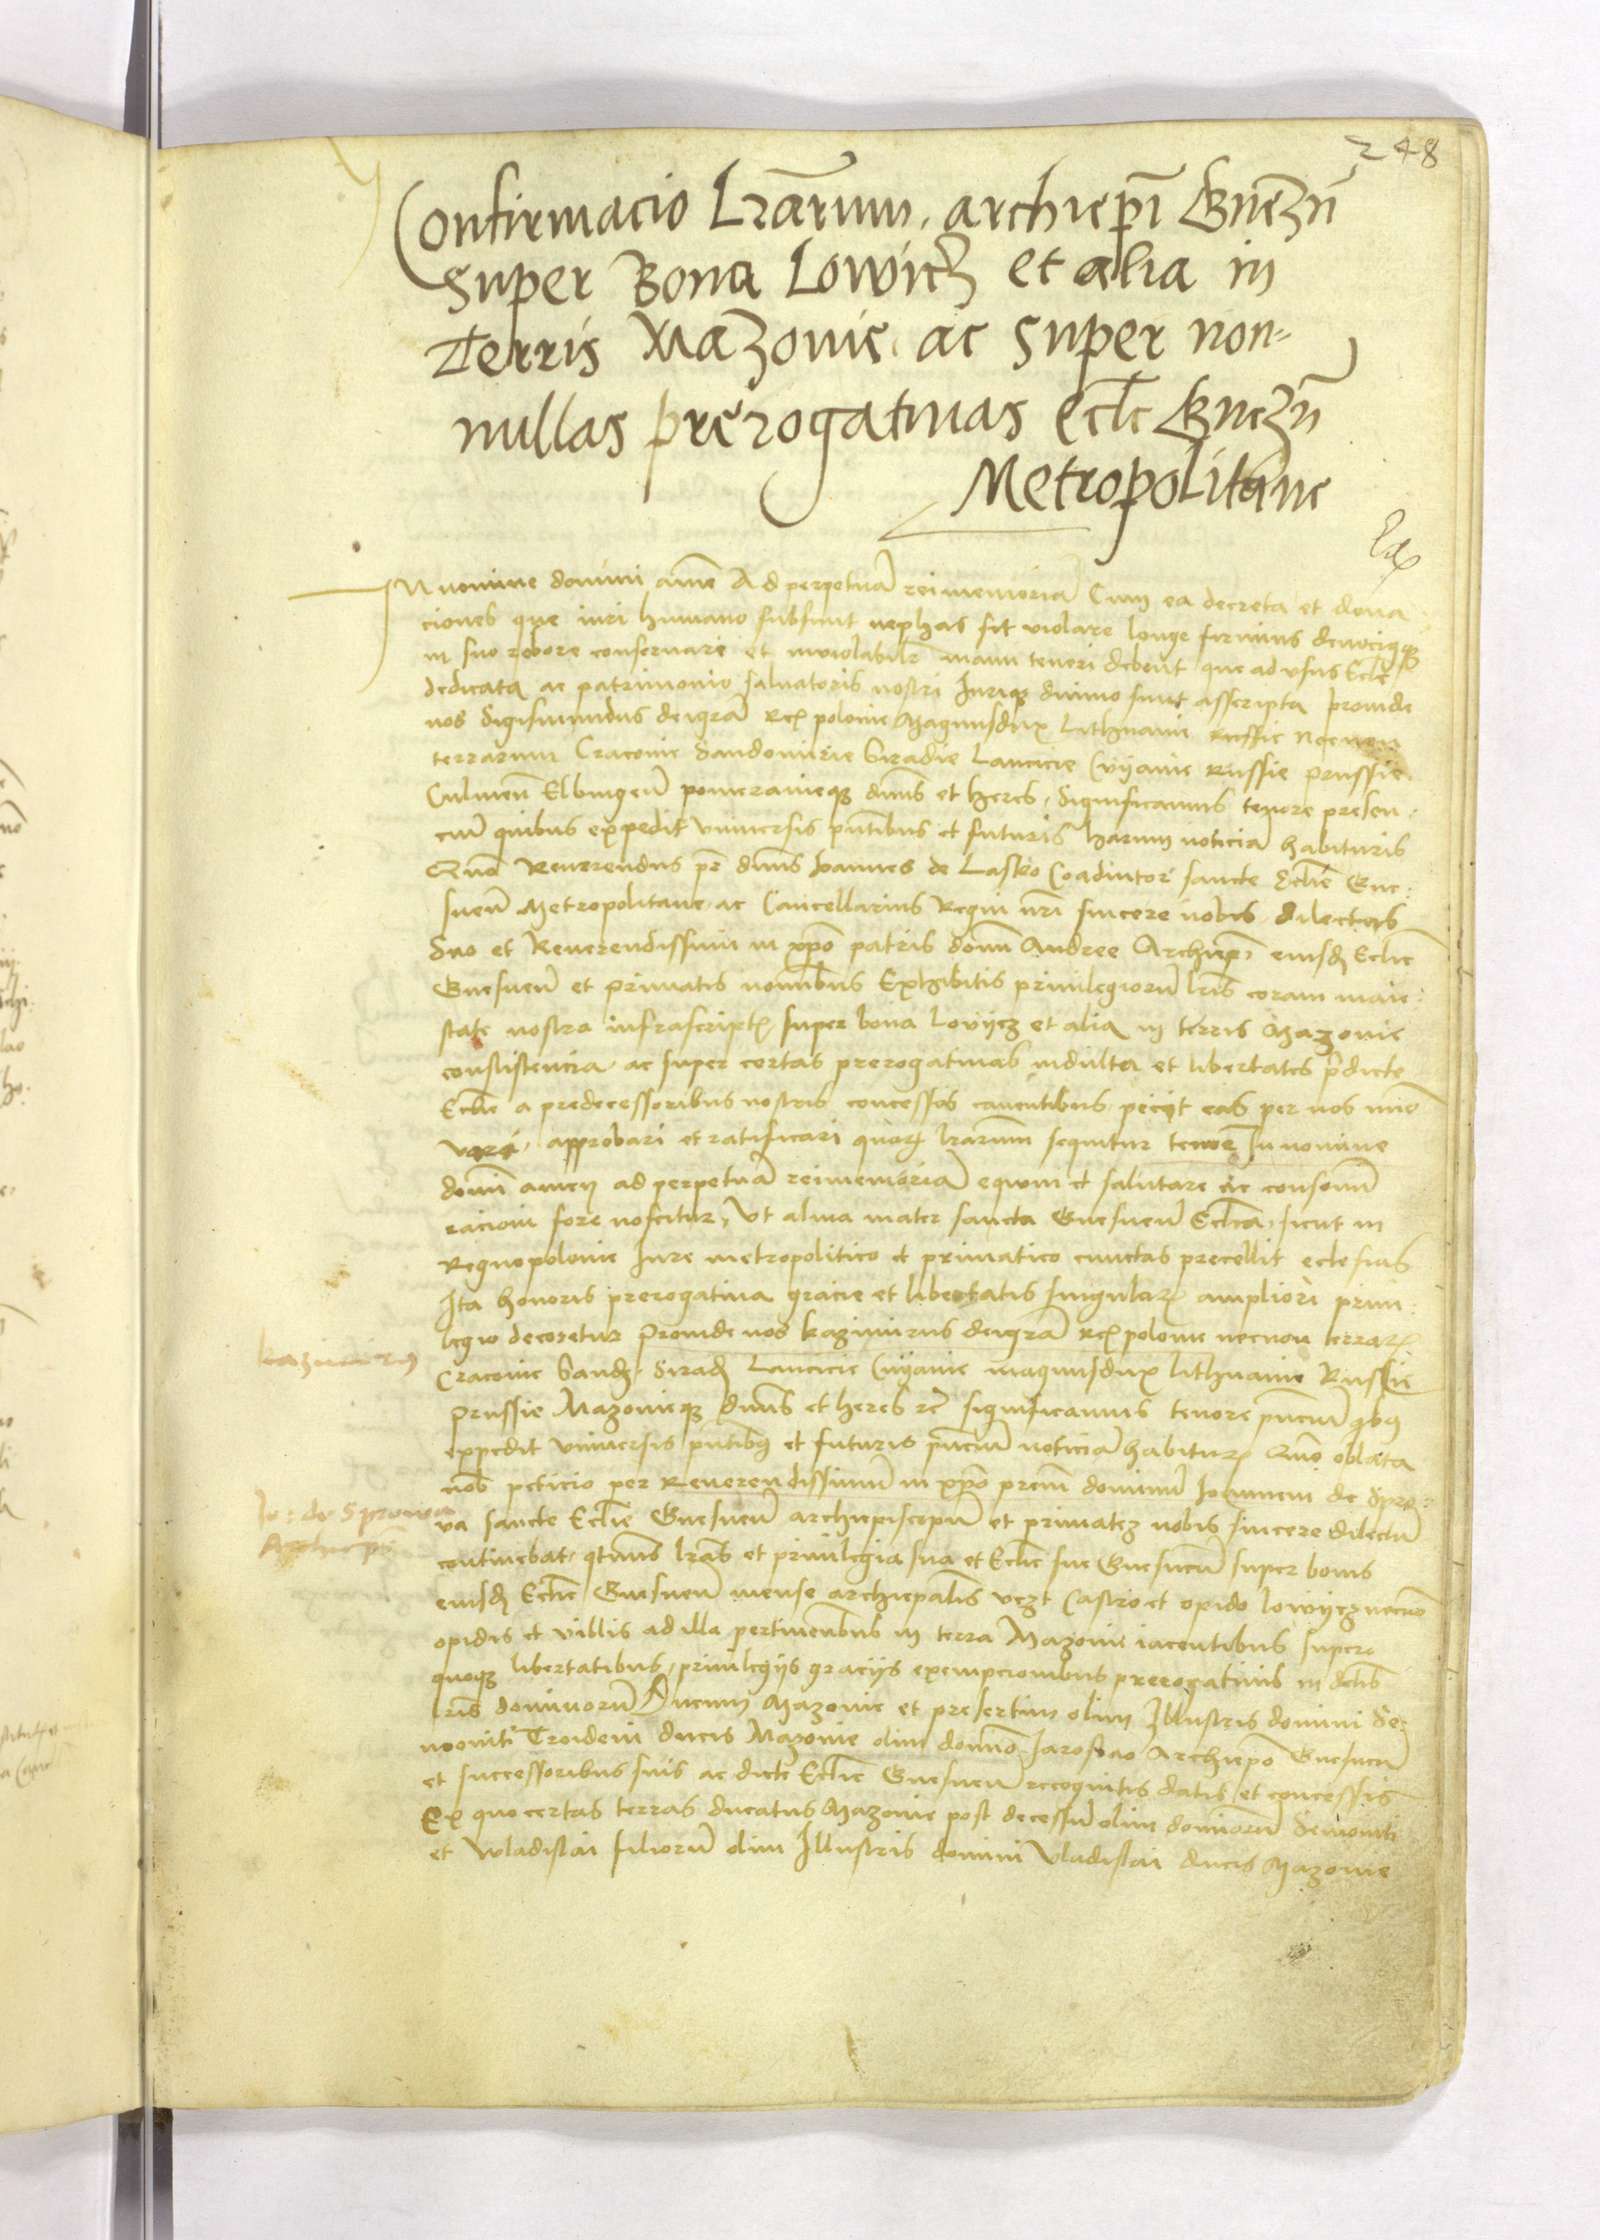 248
Confirmacio Lrarum archiepi Gnezn
super Bona Lowicz et alia in
Terris Mazovie ac super non-
nullas prerogativas ecle Gnezn
Metropolitane
In nomine domini amen Ad perpetuam rei memoriam Cum ea decreta et dona
ciones que iuri humano subsunt nephas sit violare longe firmius denique
in suo robore conservari et inviolabiliter manu teneri debent que ad usus Ecle
dedicata ac patrimonio salvatoris nostri Iurique divino sunt asscripta Proinde
nos Sigismundus dei gra Rex polonie Magnus dux Lithuanie Russie Necnon
terrarum Cracovie Sandomirie Siradie Lancicie Cuyavie Russie Prussie
Culmen Elbingen pomeranieque dnus et heres, Significamus tenore presen
cium quibus expedit universis pntibus et futuris harum noticiam habituris
Quo Reverendus pr dnus Joannes de Lasko Coadiutor sancte Eclie Gne:
snen Metropolitane ac Cancellarius Regni nri sincere nobis dilectus
Suo et Reverendissimi in xpo patris domini Andree Archiepi eiusdem Eclie
Gnesnen et primatis nominibus Exhibitis privilegiorum lris coram maie:
state nostra infrascriptis super bona Lovycz et alia in terris Mazovie
consistencia ac super certas prerogativas indulta et libertates predicte
Eclie a predecessoribus nostris concessos canentibus petiit eas per nos inno
vari, approbari et ratificari quarum lrarum sequitur tenor In nomine
domini amen ad perpetuam rei memoriam equum et salutare ac consonum
racioni fore noscitur, Ut alma mater sancta Gnesnen Ecclia, sicut in
Regno polonie Iure metropolitico et primatico cunctas precellit eclesias
Ita honoris prerogativa gracie et libertatis singularis ampliori privi:
legio decoretur Proinde nos kazimirus dei gra Rex polonie necnon terrarum
kazimirus
Cracovie Sand. Sirad. Lancicie Cuyavie magnus dux lithuanie Russie
Prussie Mazovieque dnus et heres etc significamus tenore pncium quibus
expedit universis pntibus et futuris pncium noticiam habituris Quo oblata
nob peticio per Reverendissimum in xpo prem dominum Johannem de Spro:
Jo: de Sprowa
Archiepus
va sancte Eclie Gnesnen archiepiscopum et primatem nobis sincere dilectum
continebat, qtenus lras et privilegia sua et Eclie sue Gnesnen super bonis
eiusdem Eclie Gnesnen mense archiepalis vezt Castro et opido lowycz necnon
opidis et villis ad illa pertinentibus in terra Mazovie iacentibus super
quoque libertatibus, privilegiis graciis exempcionibus prerogativis in dictis
lris dominorum Ducum Mazovie et presertim olim Illustris domini Se:
moviti Troideni ducis Mazovie olim domino Jaroslao Archiepo Gnesnen
et successoribus suis ac dicte Eclie Gnesnen recognitis datis et concessis
Ex quo certas terras ducatus Mazovie post decessum olim dominorum Semoviti
et Wladislai filiorum olim Illustris domini Vladislai ducis Mazovie